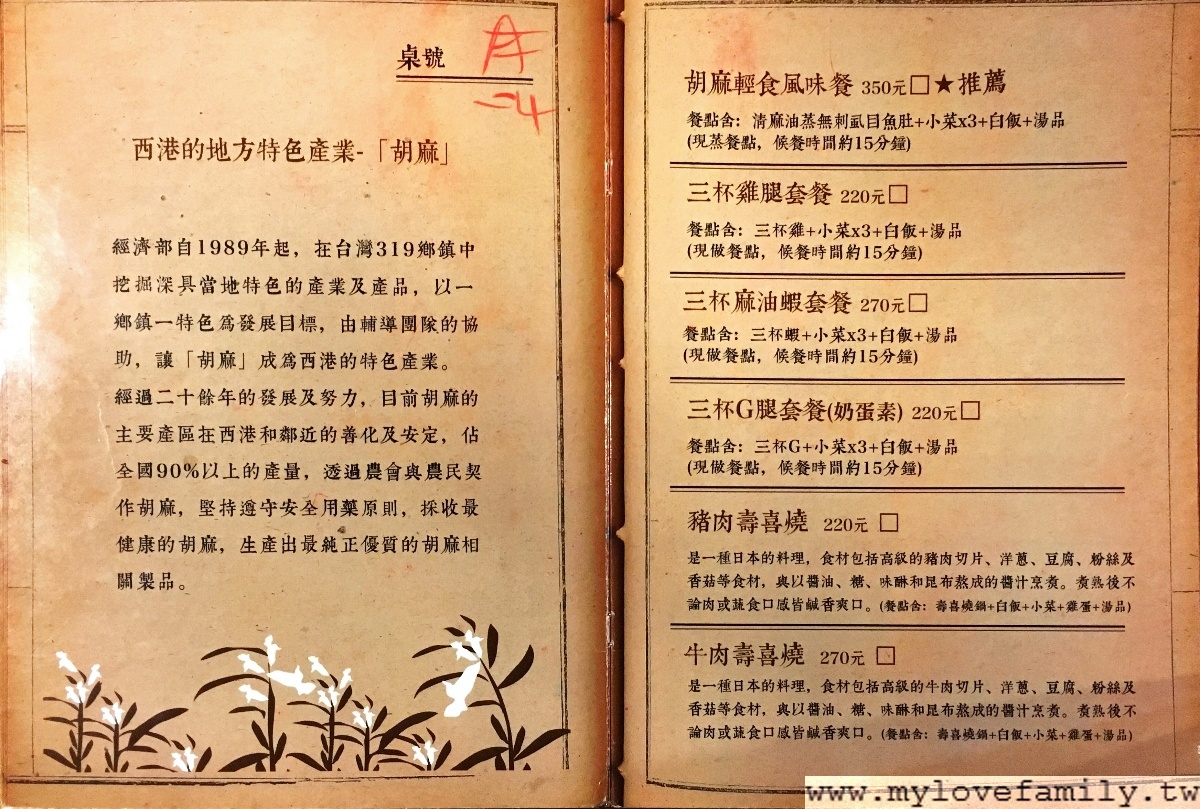 桌號 A
-4
西港的地方特色產業-「胡麻」
經濟部自1989年起，在台灣319鄉鎮中
挖掘深具當地特色的產業及產品，以一
鄉鎮一特色為發展目標，由輔導團隊的協
助，讓「胡麻」成為西港的特色產業。
經過二十餘年的發展及努力，目前胡麻的
主要產區在西港和鄰近的善化及安定，佔
全國90%以上的產量，透過農會與農民契
作胡麻，堅持遵守安全用藥原則，採收最
健康的胡麻，生產出最純正優質的胡麻相
關製品。
胡麻輕食風味餐 350元□★推薦
餐點含：清麻油蒸無刺虱目魚肚+小菜x3+白飯+湯品
(現蒸餐點，候餐時間約15分鐘)
三杯雞腿套餐 220元□
餐點含：三杯雞+小菜x3+白飯+湯品
(現做餐點，候餐時間約15分鐘)
三杯麻油蝦套餐 270元□
餐點含：三杯蝦+小菜x3+白飯+湯品
(現做餐點，候餐時間約15分鐘)
三杯G腿套餐(奶蛋素) 220元□
餐點含：三杯G+小菜x3+白飯+湯品
(現做餐點，候餐時間約15分鐘)
豬肉壽喜燒 220元 □
是一種日本的料理，食材包括高級的豬肉切片、洋蔥、豆腐、粉絲及
香菇等食材，與以醬油、糖、味醂和昆布熬成的醬汁烹煮。煮熟後不
論肉或蔬食口感皆鹹香爽口。(餐點含：壽喜燒鍋+白飯+小菜+雞蛋+湯品)
牛肉壽喜燒 270元 □
是一種日本的料理，食材包括高級的牛肉切片、洋蔥、豆腐、粉絲及
香菇等食材，與以醬油、糖、味醂和昆布熬成的醬汁烹煮。煮熟後不
論肉或蔬食口感皆鹹香爽口。(餐點含：壽喜燒鍋+白飯+小菜+雞蛋+湯品)
www.mylovefamily.tw